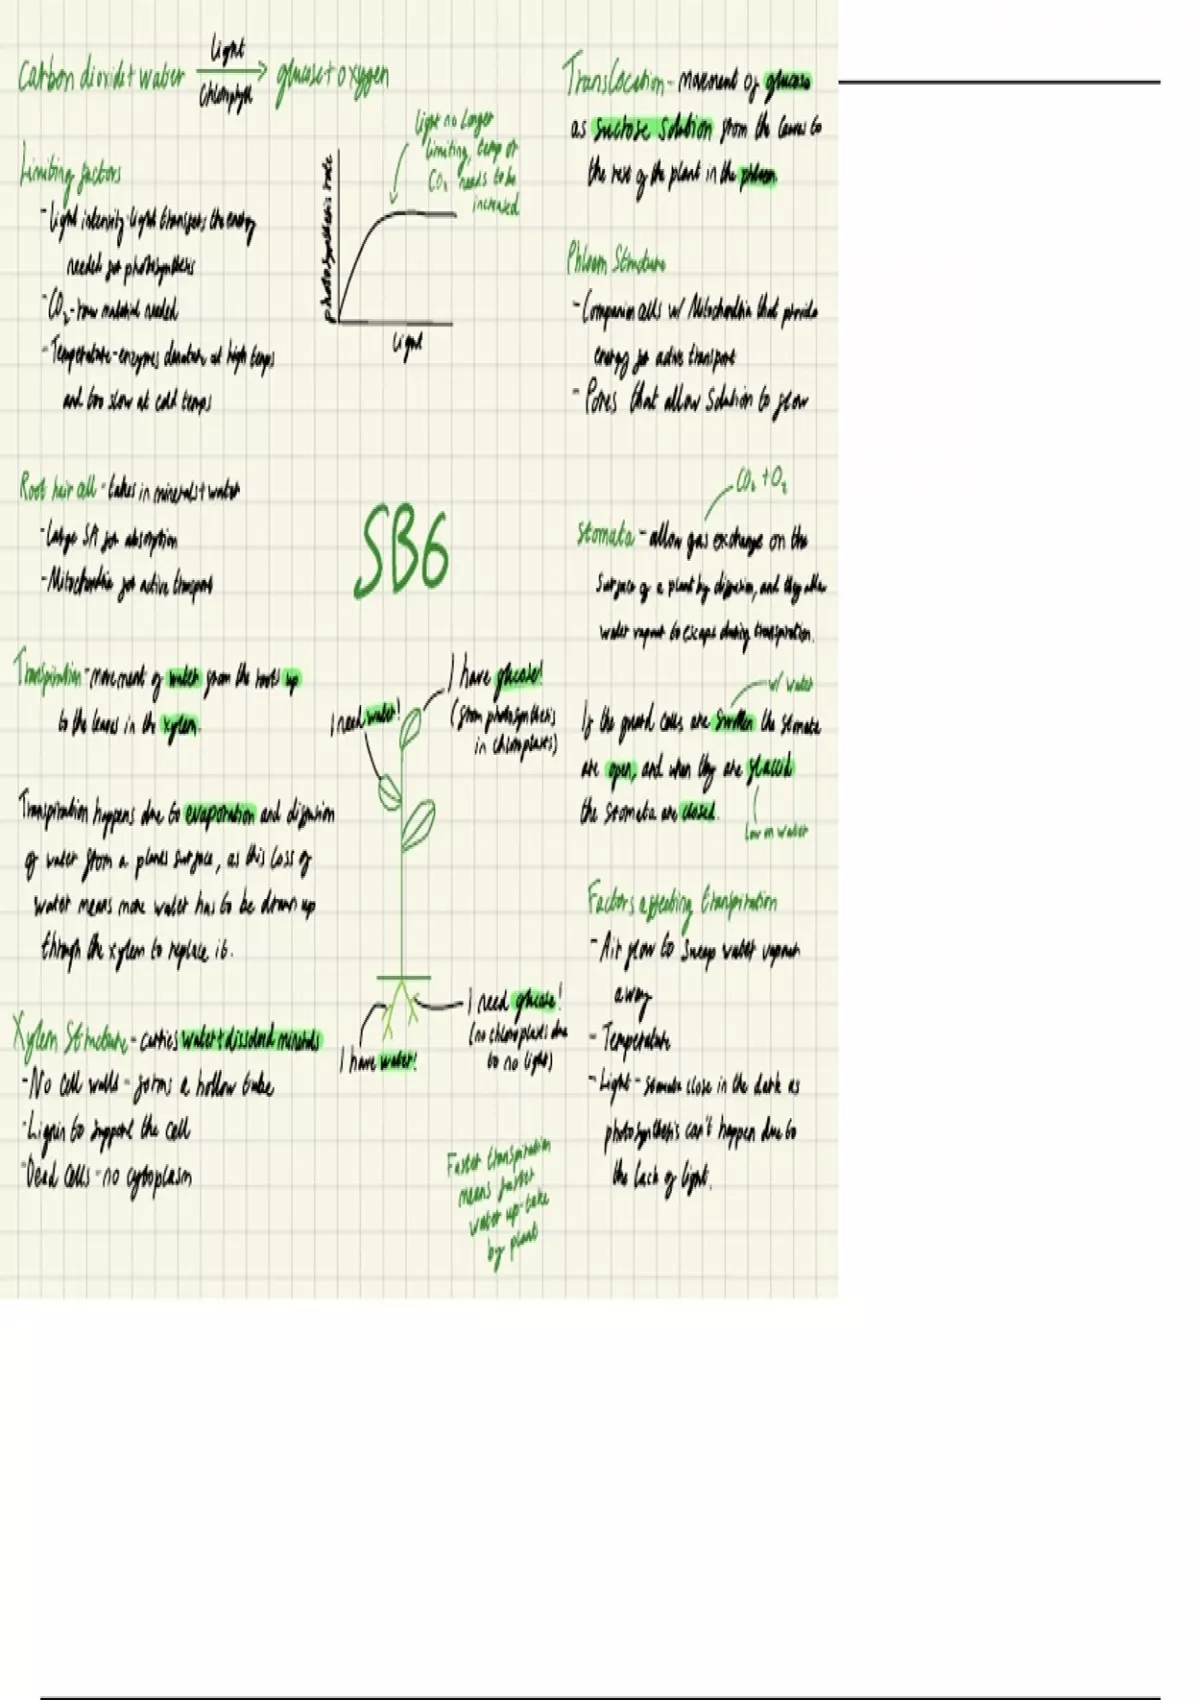 Light
Carbon dioxide + water → glucose + oxygen
Chlorophyll
Limiting factors
- Light intensity - light transfers the energy
needed for photosynthesis
- CO₂ - raw material needed
- Temperature - enzymes denature at high temps
and too slow at cold temps
light no longer
limiting, temp or
CO₂ needs to be
increased
photosynthesis rate
Light
Root hair cell - takes in minerals + water
- Large SA for absorption
- Mitochondria for active transport
SB6
Transpiration - movement of water from the roots up
to the leaves in the xylem.
Transpiration happens due to evaporation and diffusion
of water from a plants surface, as this loss of
water means more water has to be drawn up
through the xylem to replace it.
Xylem Structure - carries water + dissolved minerals
- No cell walls - forms a hollow tube
- Lignin to support the cell
- Dead cells - no cytoplasm
I need water!
I have glucose!
(from photosynthesis
in chloroplasts)
I have water!
I need glucose!
(no chloroplasts due
to no light)
Faster transpiration
means faster
water up-take
by plant
Translocation - movement of glucose
as sucrose solution from the leaves to
the rest of the plant in the phloem
Phloem Structure
- Companion cells w/ Mitochondria that provide
energy for active transport
- Pores that allow solution to flow
CO₂ + O₂
Stomata - allow gas exchange on the
surface of a plant by diffusion, and they allow
water vapour to escape during transpiration.
w/ water
If the guard cells are swollen the stomata
are open, and when they are flaccid
the stomata are closed.
Low on water
Factors affecting transpiration
- Air flow to sweep water vapour
away
- Temperature
- Light - stomata close in the dark as
photosynthesis can't happen due to
the lack of light.